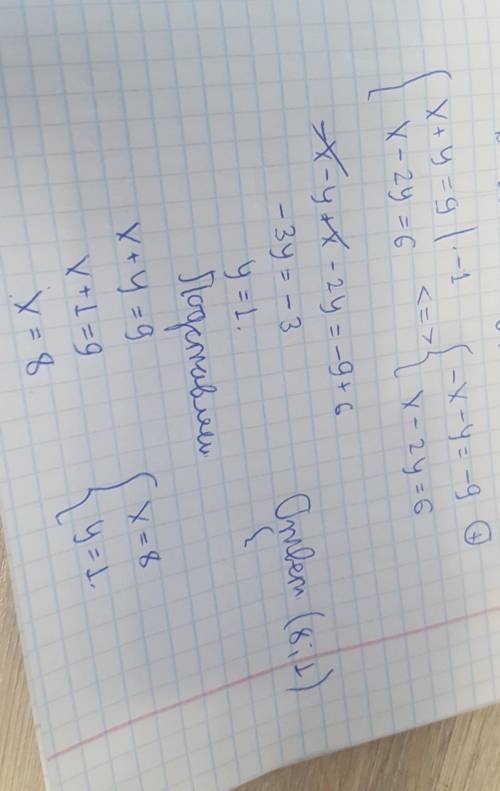 { x + y = 9 | · -1 <=> { -x - y = -9 ⊕
{ x - 2y = 6 { x - 2y = 6
-x - y + x - 2y = -9 + 6
-3y = -3
y = 1.
Подставляем
x + y = 9
x + 1 = 9
x = 8
{ x = 8
{ y = 1.
Ответ (8; 1)